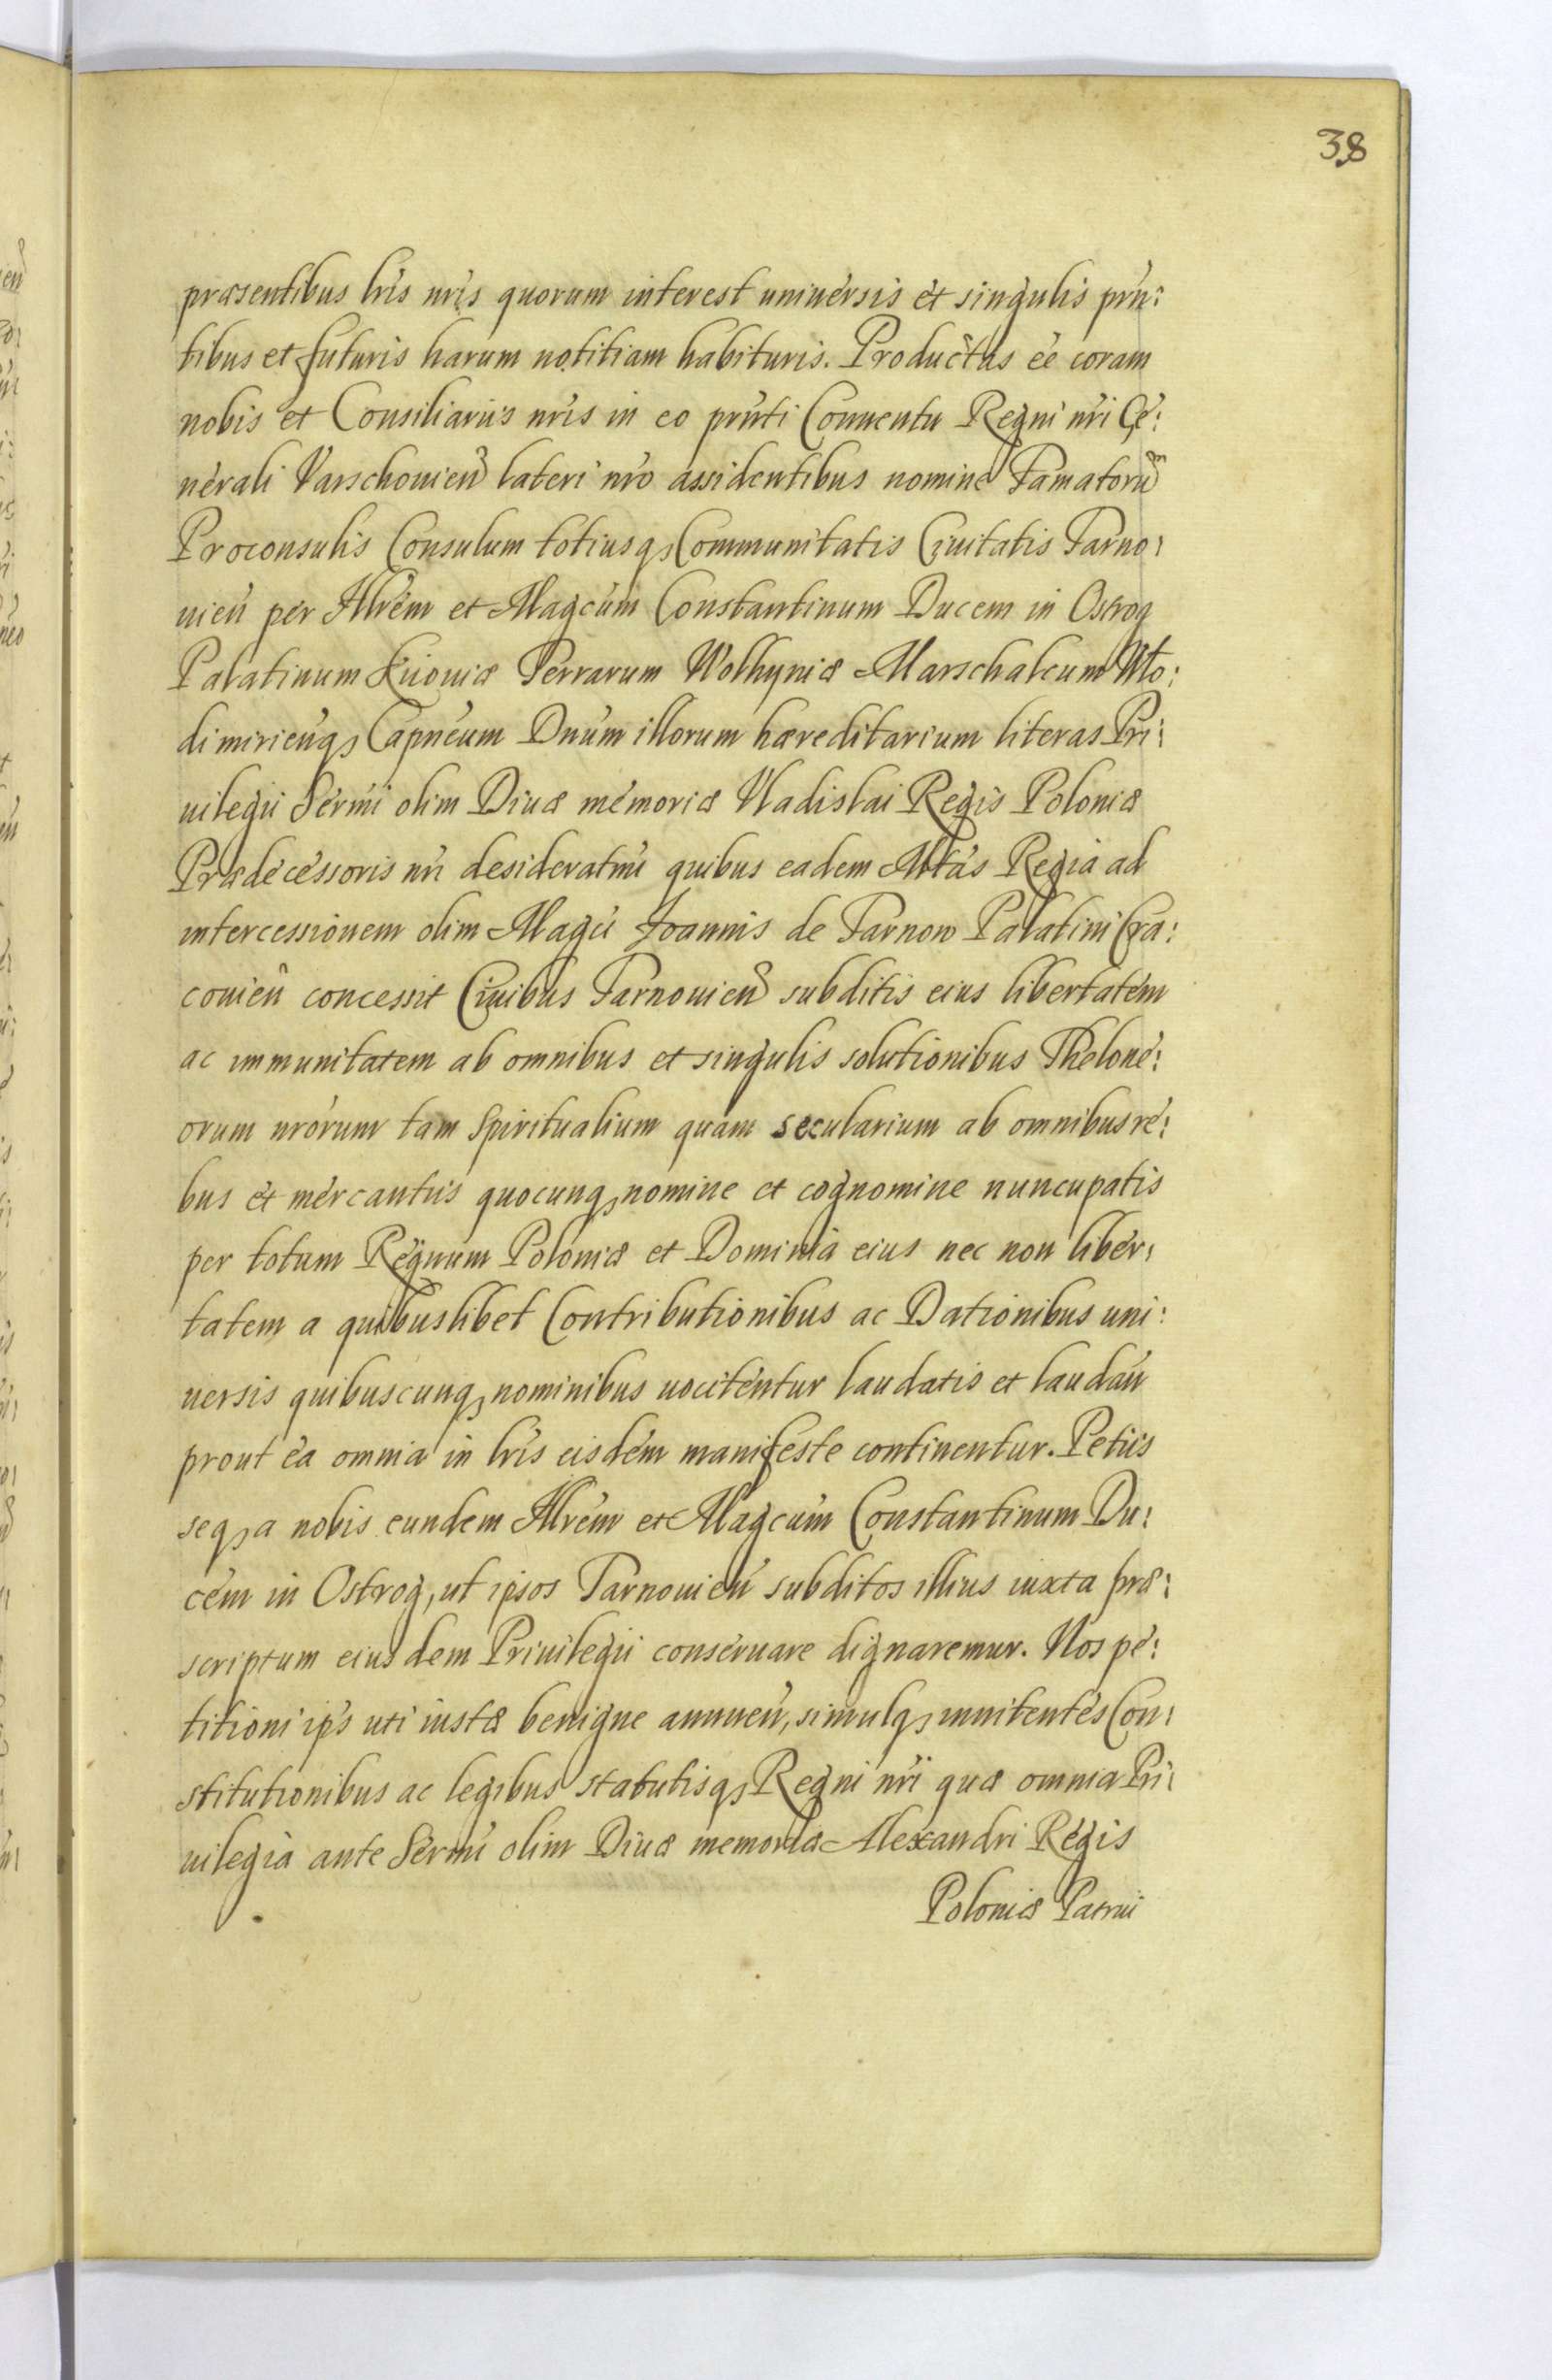 38
præsentibus lris nris quorum interest uniuersis et singulis prn:
tibus et futuris harum notitiam habituris. Productas ee coram
nobis et Consiliariis nris in eo prnti Conuentu Regni nri Ge:
nerali Varschouien lateri nro assidentibus nomine Famatorum
Proconsulis Consulum totiusq3 Communitatis Ciuitatis Tarno:
uien per Illrem et Magcum Constantinum Ducem in Ostrog
Palatinum Kiiouiæ Terrarum Wolhyniæ Marschalcum Wlo:
dimirienq3 Capneum Dnum illorum hæreditarium literas Pri:
uilegii Sermi olim Diuæ memoriæ Vladislai Regis Poloniæ
Prædecessoris nri desideratmi quibus eadem Mtas Regia ad
intercessionem olim Magci Joannis de Tarnow Palatini Cra:
couien concessit Ciuibus Tarnouien subditis eius libertatem
ac immunitatem ab omnibus et singulis solutionibus Thelone:
orum nrorum tam Spiritualium quam secularium ab omnibus re:
bus et mercantiis quocunq3 nomine et cognomine nuncupatis
per totum Regnum Poloniæ et Dominia eius nec non liber:
tatem a quibuslibet Contributionibus ac Dationibus uni:
uersis quibuscunq3 nominibus uocitentur laudatis et laudan
prout ea omnia in lris eisdem manifeste continentur. Petiis
seq3 a nobis eundem Illrem et Magcum Constantinum Du:
cem in Ostrog, ut ipsos Tarnouien subditos illius iuxta præ:
scriptum eiusdem Priuilegii conseruare dignaremur. Nos pe:
titioni ips uti iustæ benigne annuen, simulq3 innitentes Con:
stitutionibus ac legibus statutisq3 Regni nri quæ omnia Pri:
uilegia ante Sermi olim Diuæ memoriæ Alexandri Regis
Poloniæ Patrui